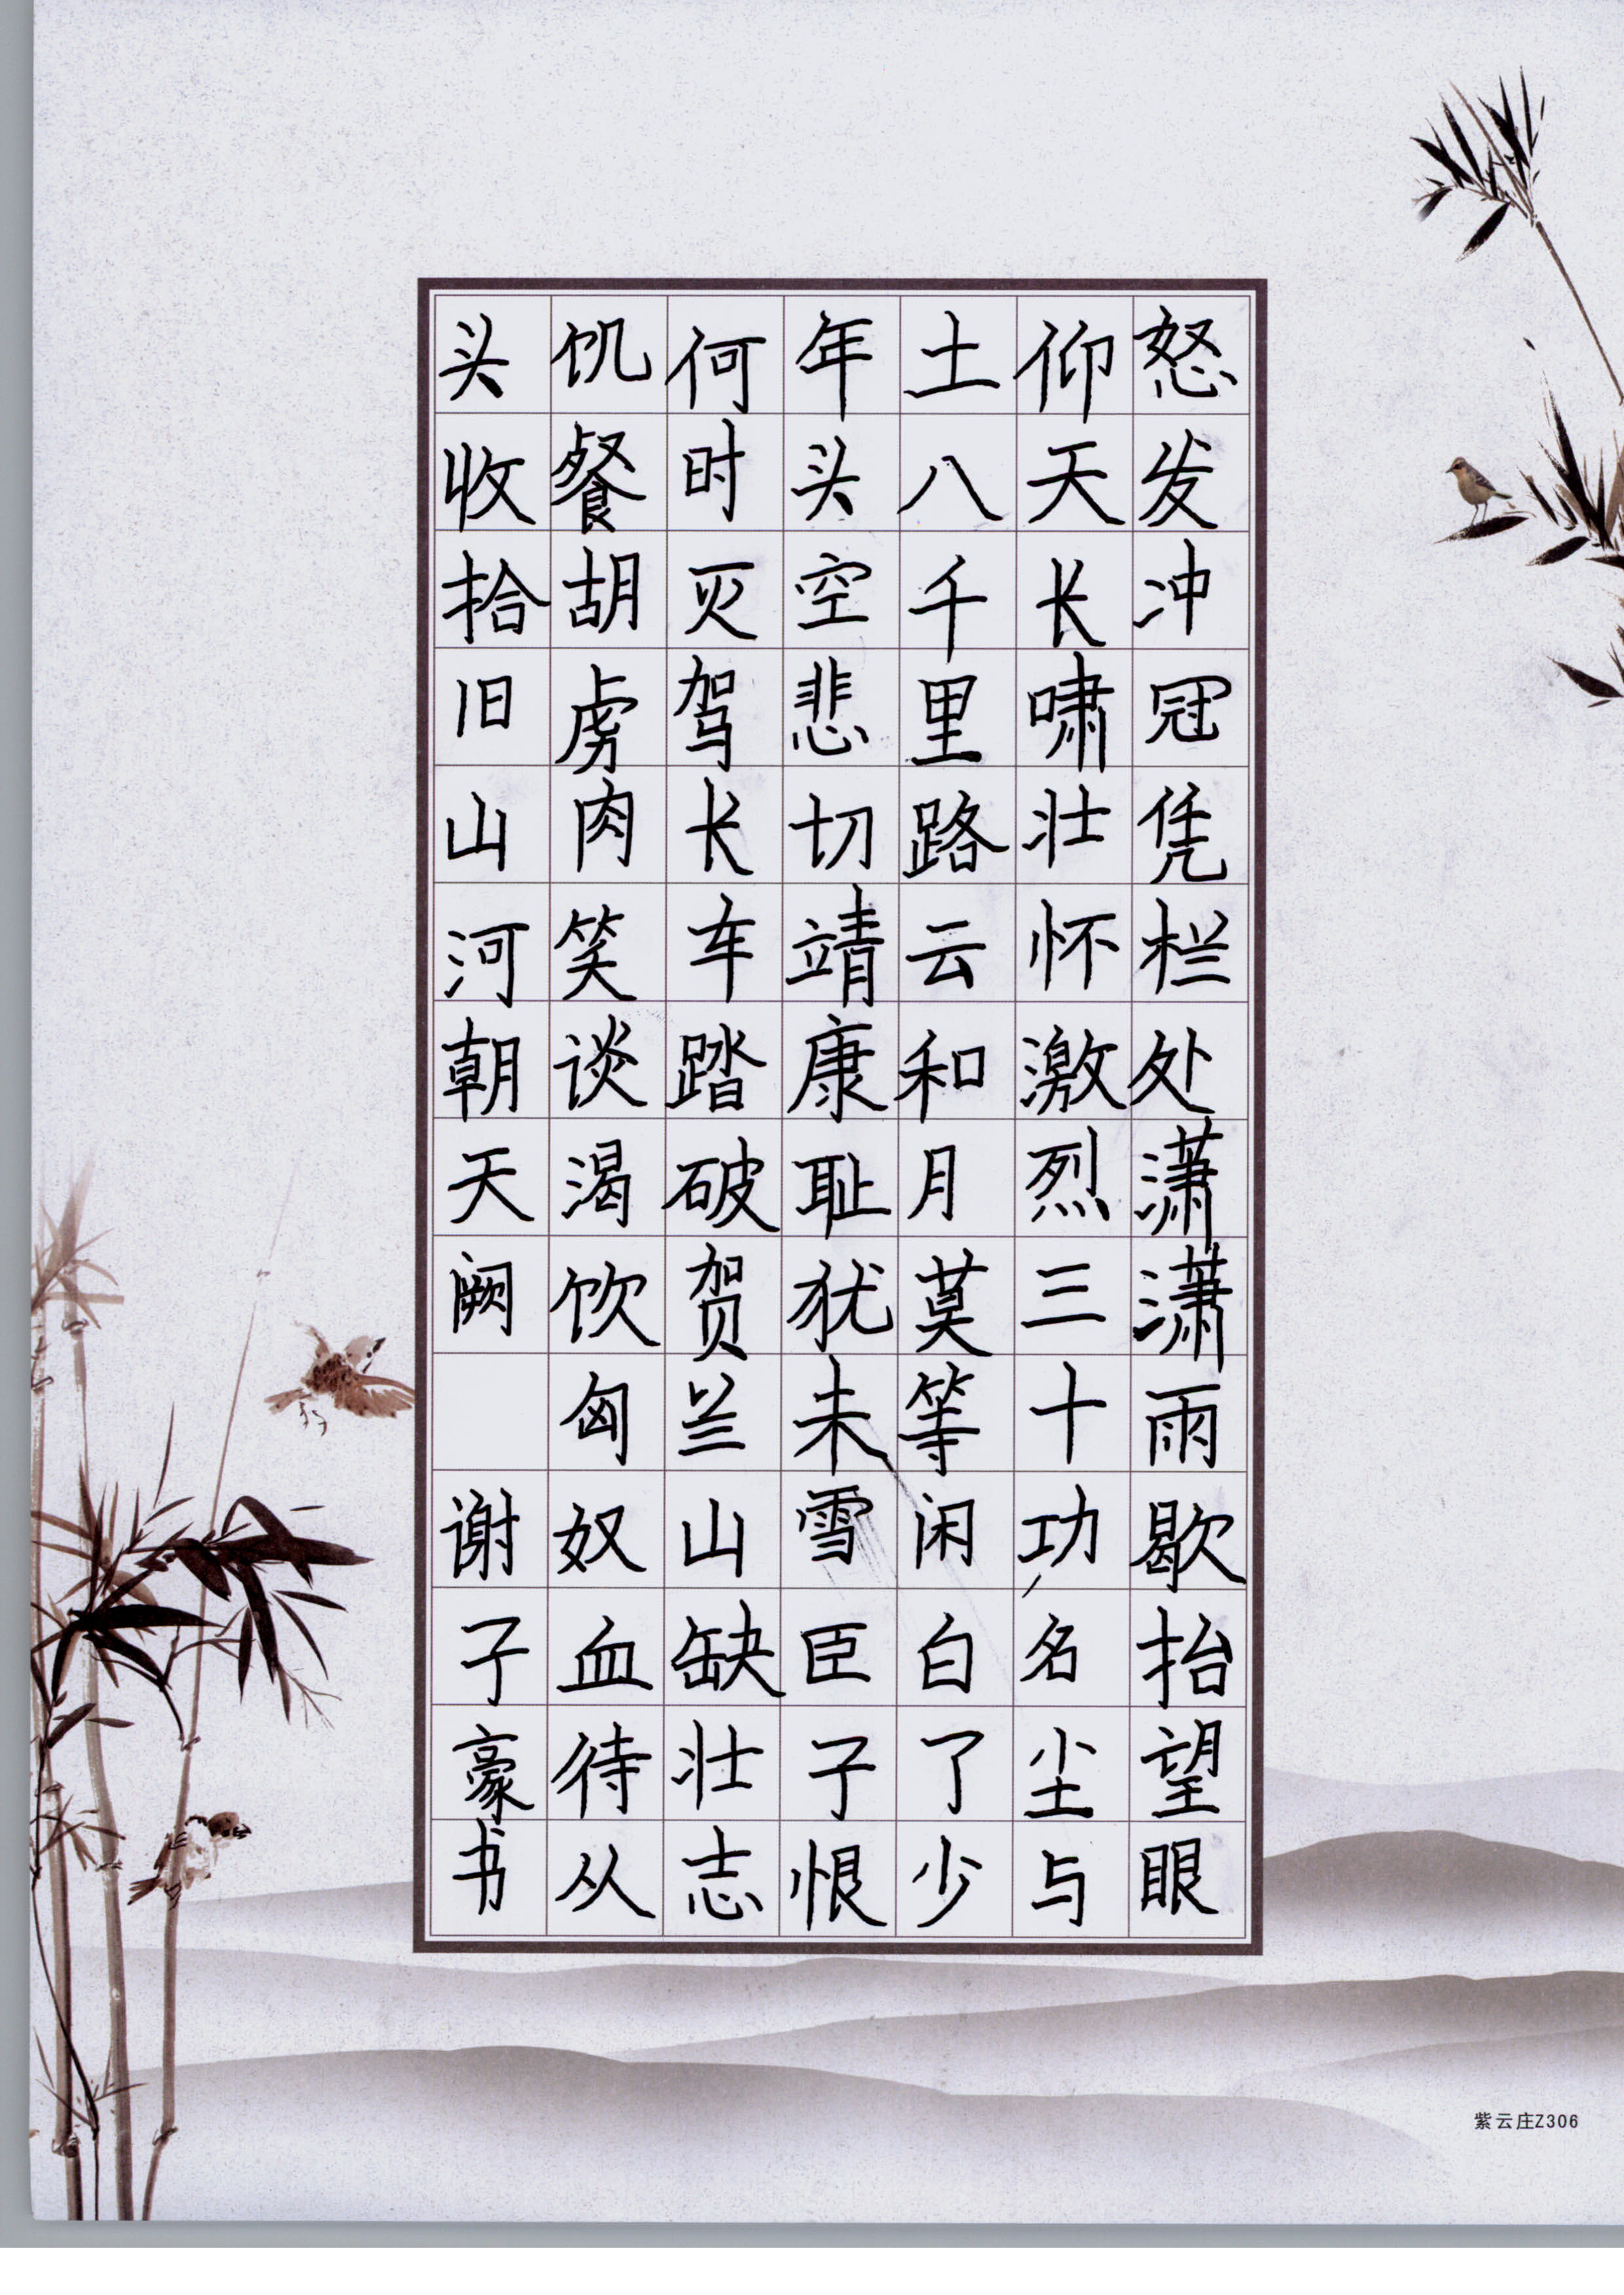 怒发冲冠凭栏处潇潇雨歇抬望眼
仰天长啸壮怀激烈三十功名尘与
土八千里路云和月莫等闲白了少
年头空悲切靖康耻犹未雪臣子恨
何时灭驾长车踏破贺兰山缺壮志
饥餐胡虏肉笑谈渴饮匈奴血待从
头收拾旧山河朝天阙 谢子豪书
紫云庄Z306